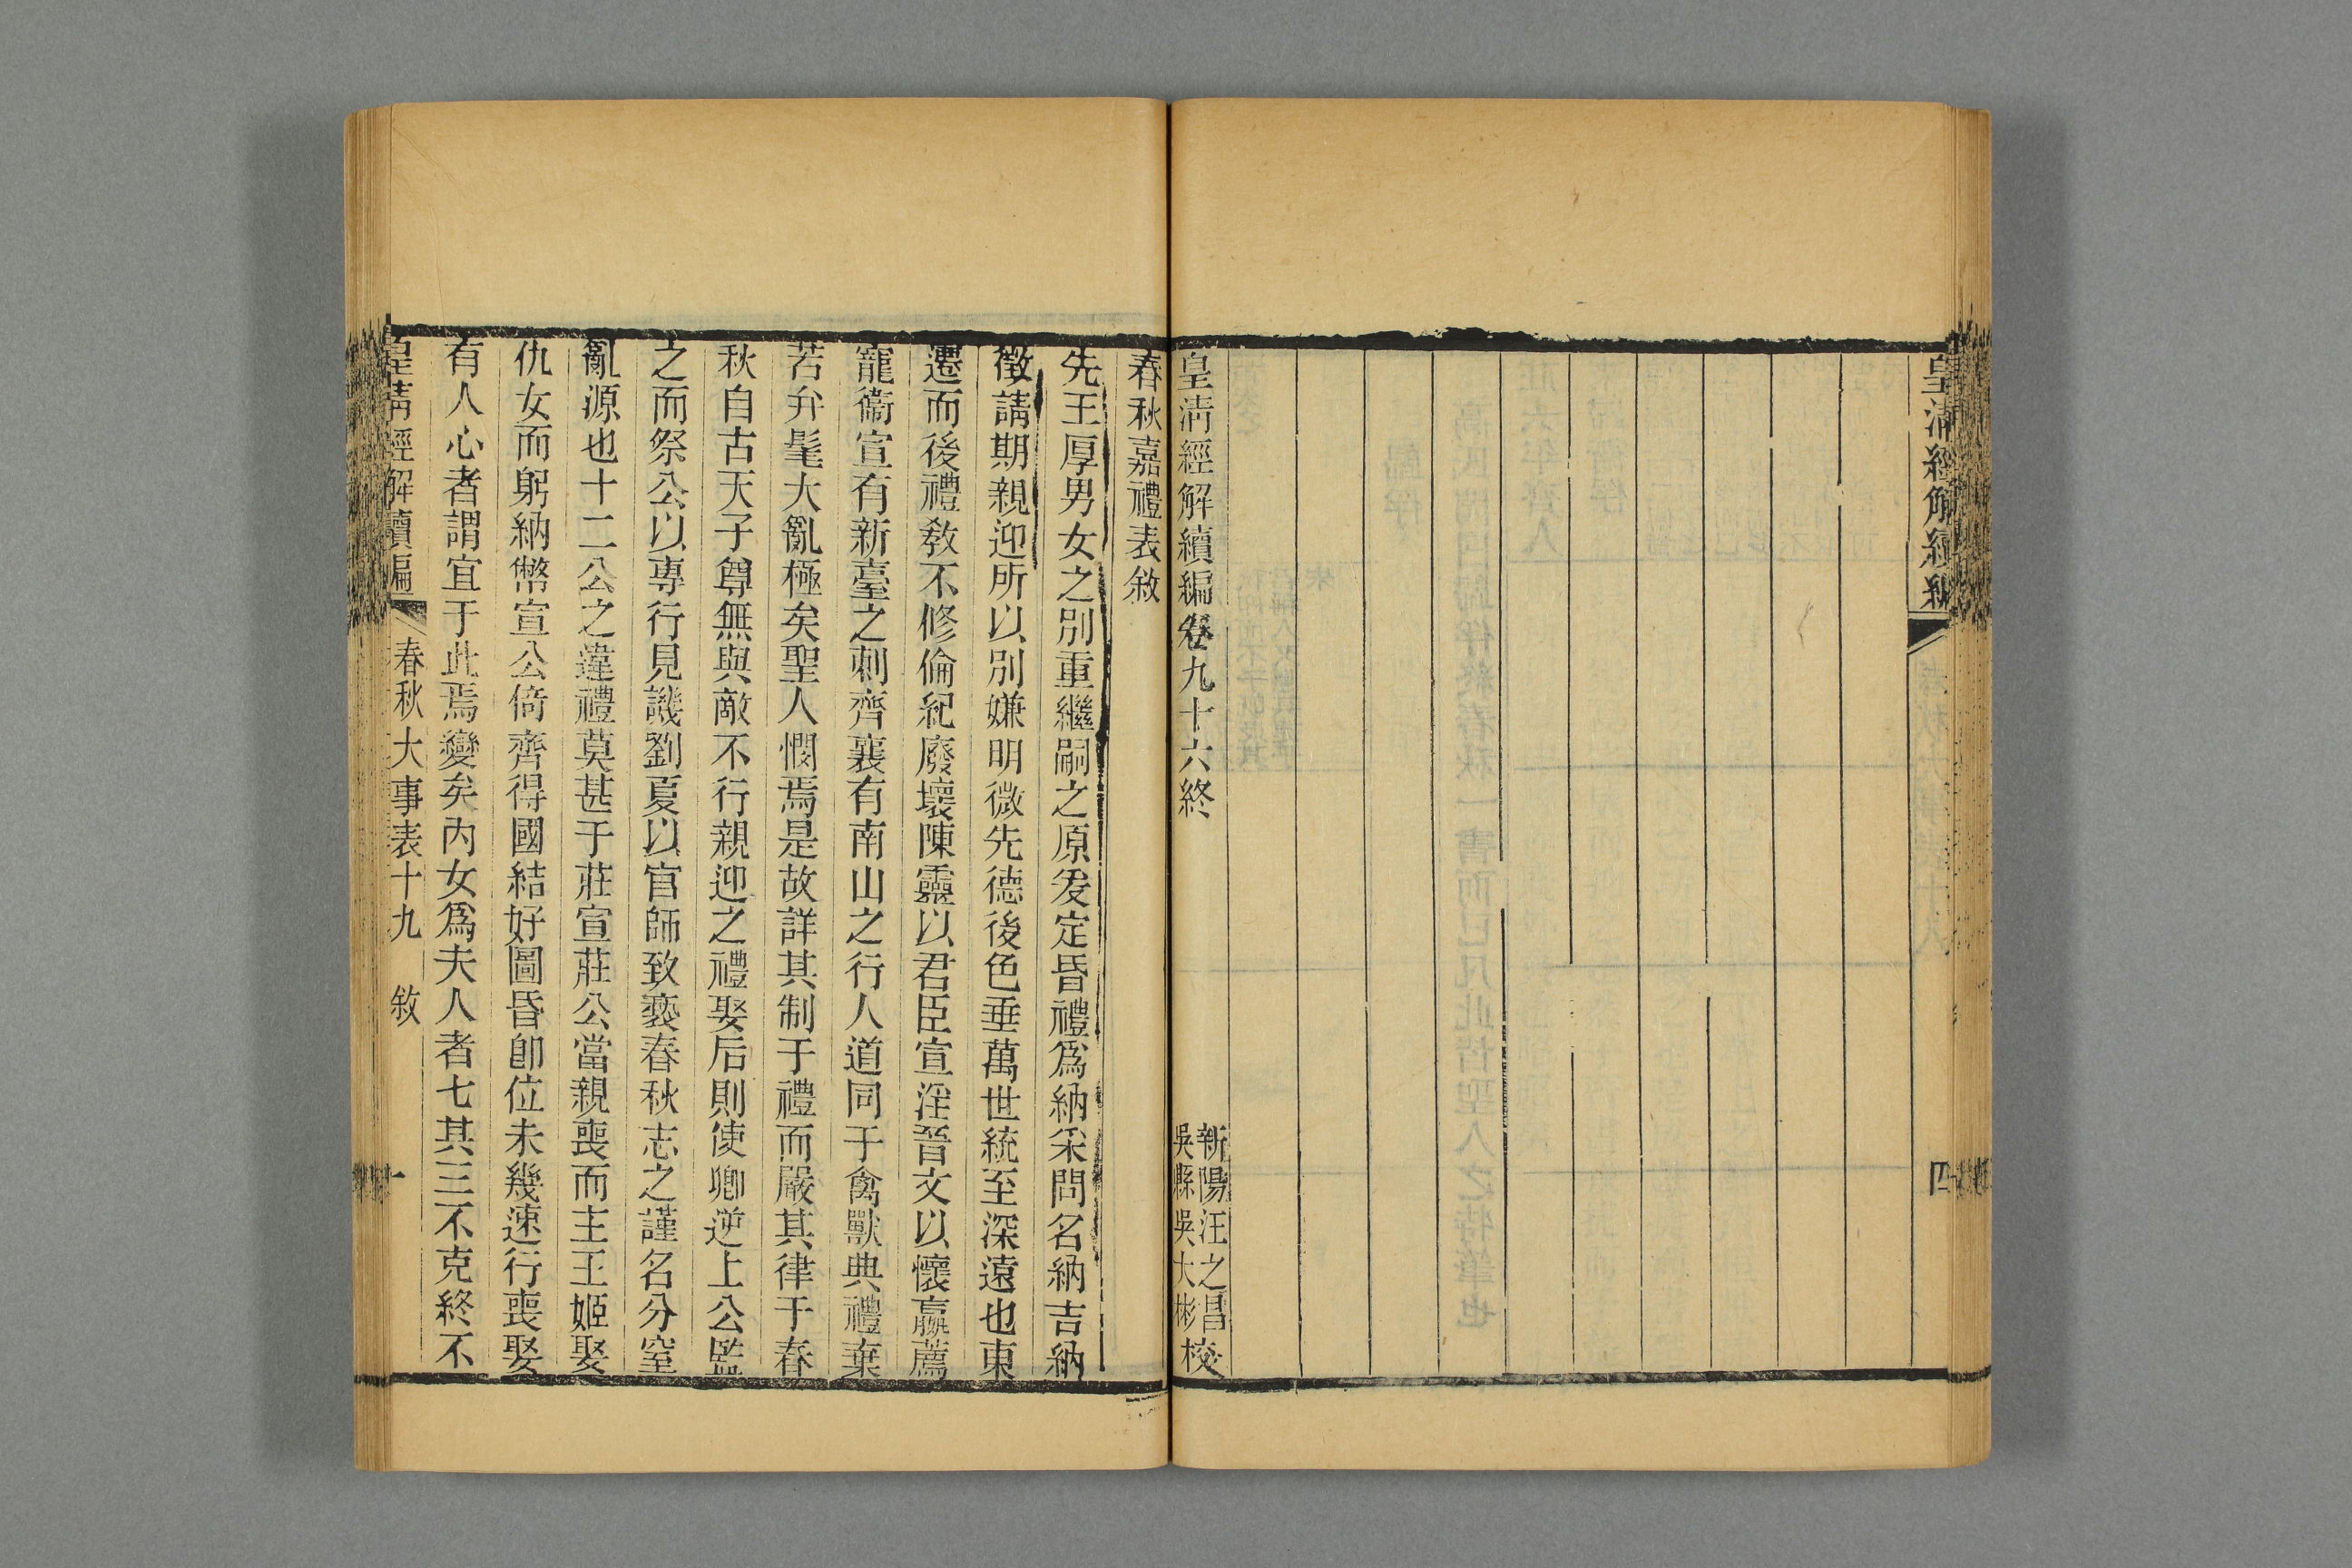 皇清經解續編
四
皇清經解續編卷九十六終
新陽汪之昌
吳縣吳大彬
校
春秋嘉禮表敘
先王厚男女之別重繼嗣之原爰定昏禮爲納采問名納吉納
徵請期親迎所以別嫌明微先德後色垂萬世統至深遠也東
遷而後禮敎不修倫紀廢壞陳靈以君臣宣淫晉文以懷嬴薦
寵衞宣有新臺之刺齊襄有南山之行人道同于禽獸典禮棄
若弁髦大亂極矣聖人憫焉是故詳其制于禮而嚴其律于春
秋自古天子尊無與敵不行親迎之禮娶后則使卿逆上公監
之而祭公以專行見譏劉夏以官師致褻春秋志之謹名分窒
亂源也十二公之違禮莫甚于莊宣莊公當親喪而主王姬娶
仇女而躬納幣宣公倚齊得國結好圖昏卽位未幾速行喪娶
有人心者謂宜于此焉變矣內女爲夫人者七其三不克終不
皇清經解續編
春秋大事表十九
敘
一